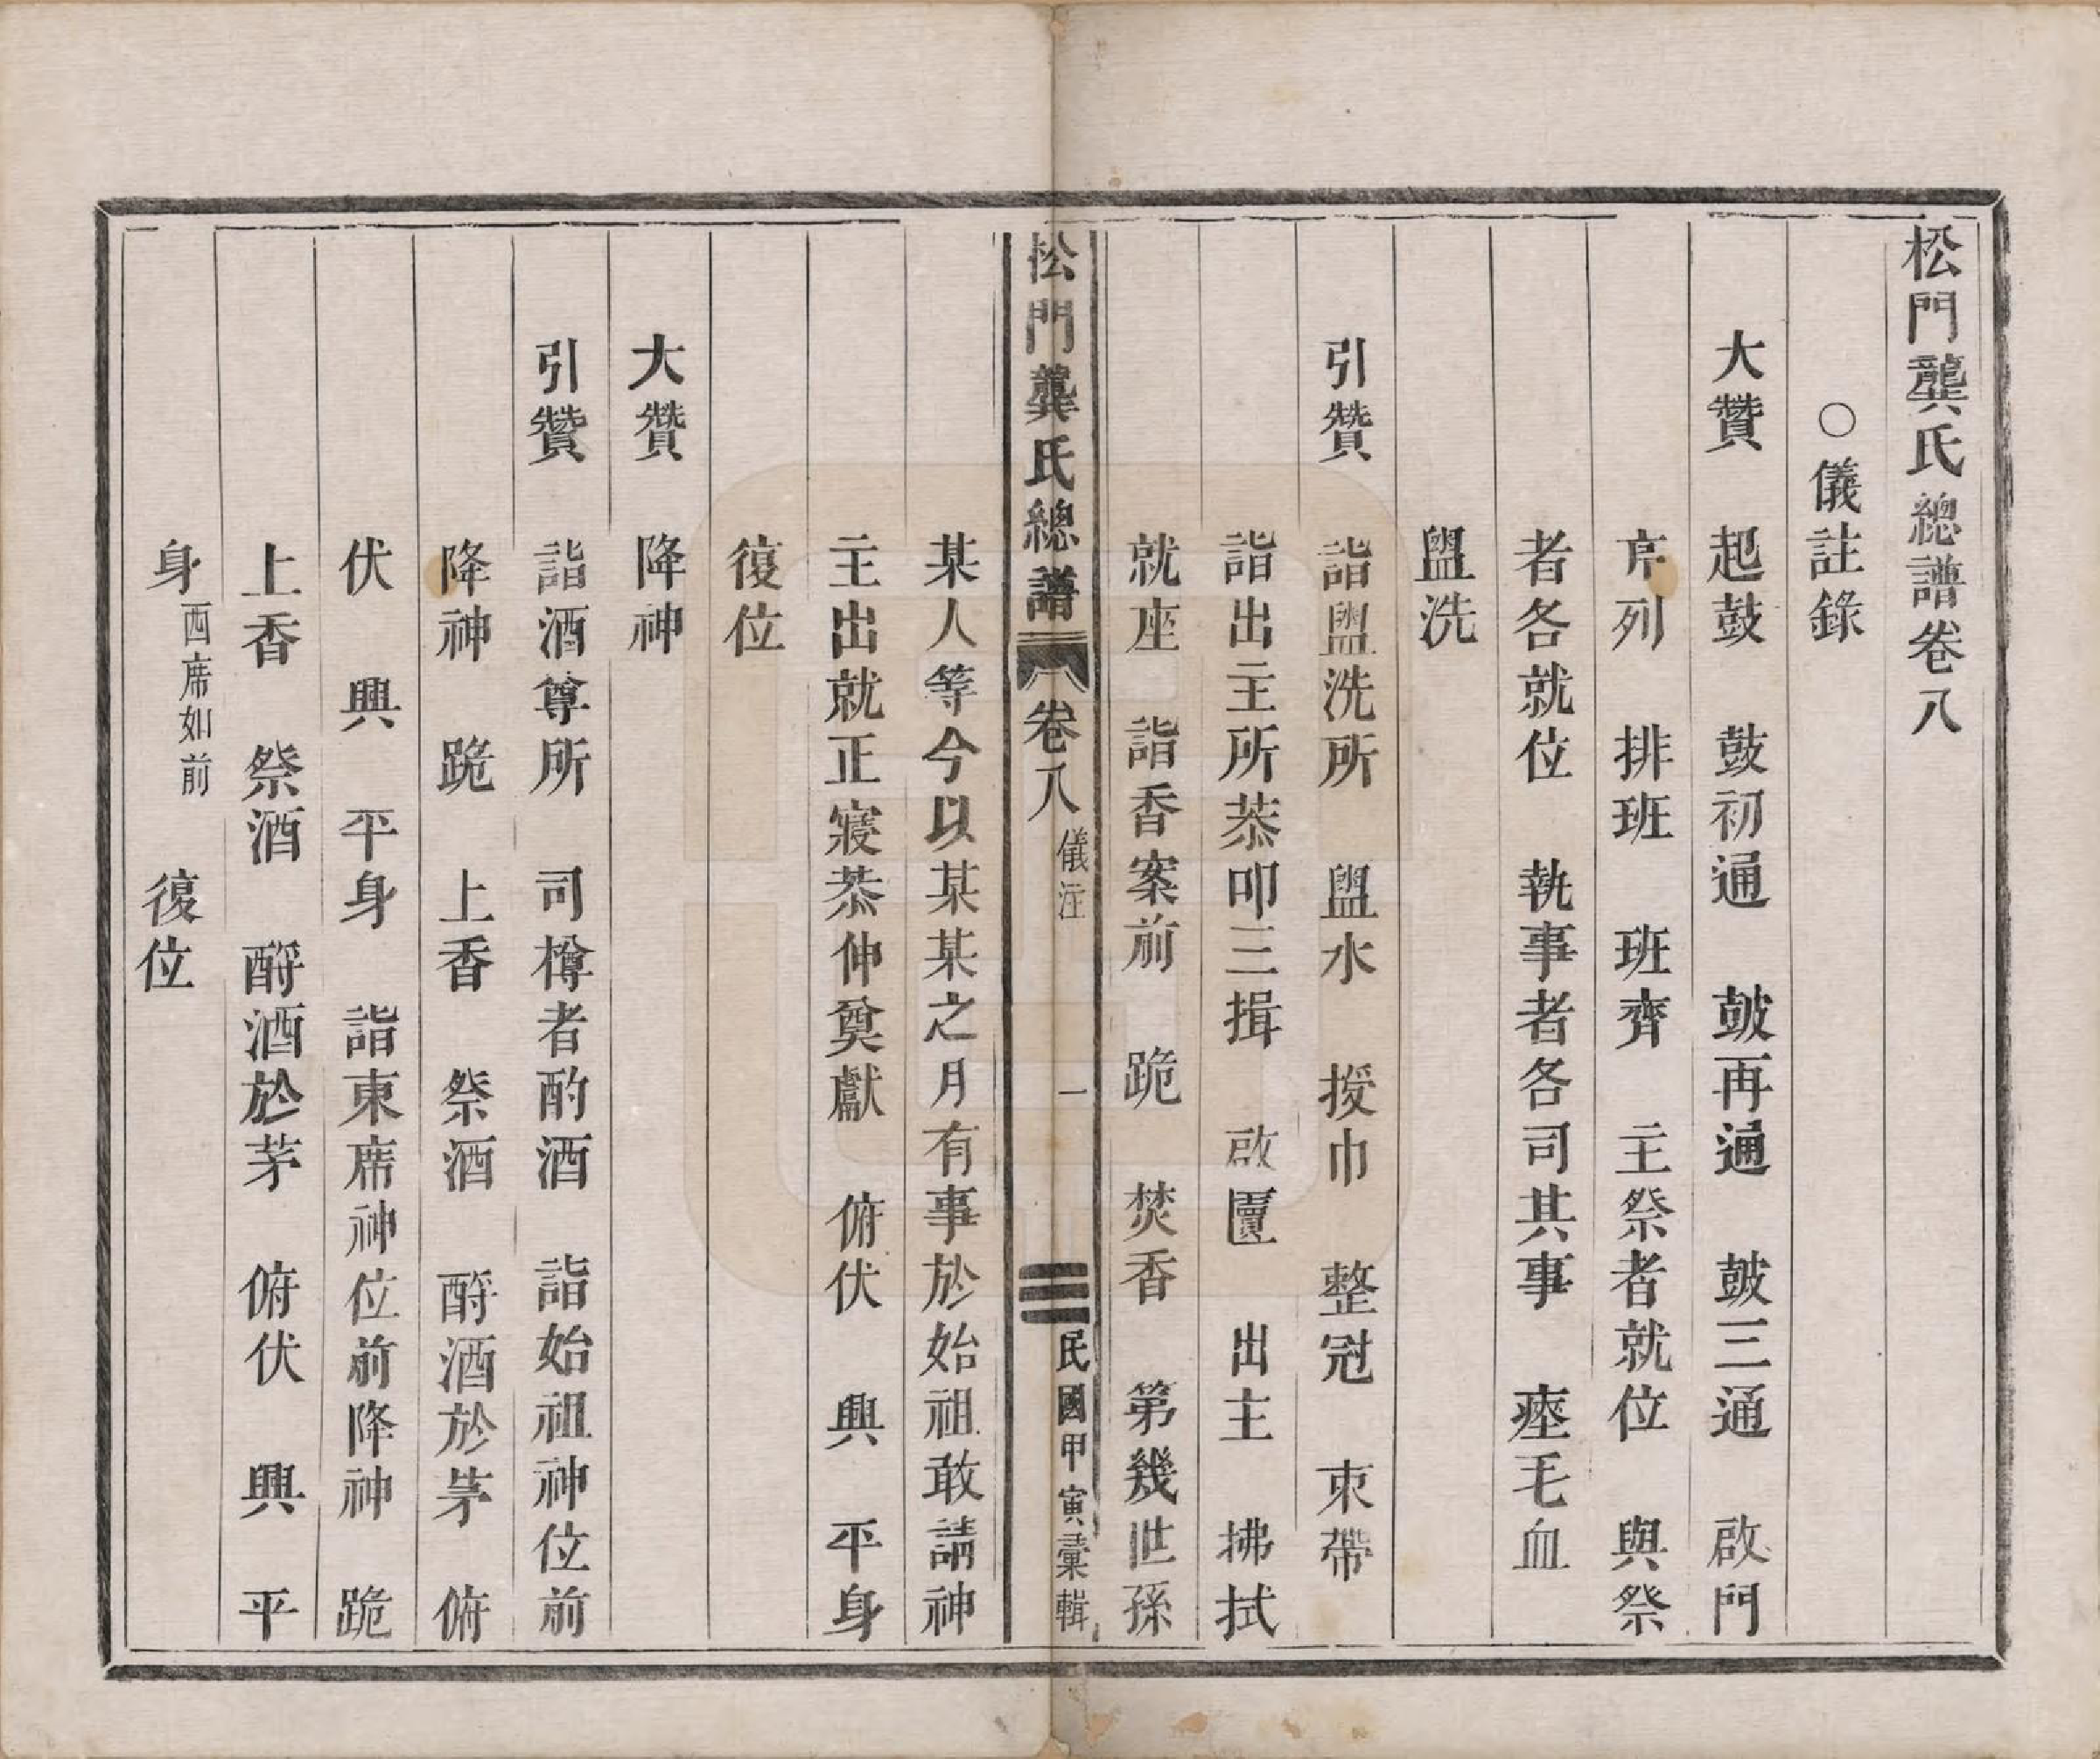 松門龔氏總譜卷八
○儀註錄
大贊　起鼓　鼓初通　鼓再通　鼓三通　啟門
序列　排班　班齊　主祭者就位　與祭
者各就位　執事者各司其事　瘞毛血
盥洗
引贊　詣盥洗所　盥水　授巾　整冠　束帶
詣出主所恭叩三揖　啟匵　出主　拂拭
就座　詣香案前　跪　焚香　第幾世孫
松門龔氏總譜　卷八　儀注　一　民國甲寅彙輯
某人等今以某某之月有事於始祖敢請神
主出就正寢恭伸奠獻　俯伏　興　平身
復位
大贊　降神
引贊　詣酒尊所　司樽者酌酒　詣始祖神位前
降神　跪　上香　祭酒　酹酒於茅　俯
伏　興　平身　詣東席神位前降神　跪
上香　祭酒　酹酒於茅　俯伏　興　平
身西席如前　復位